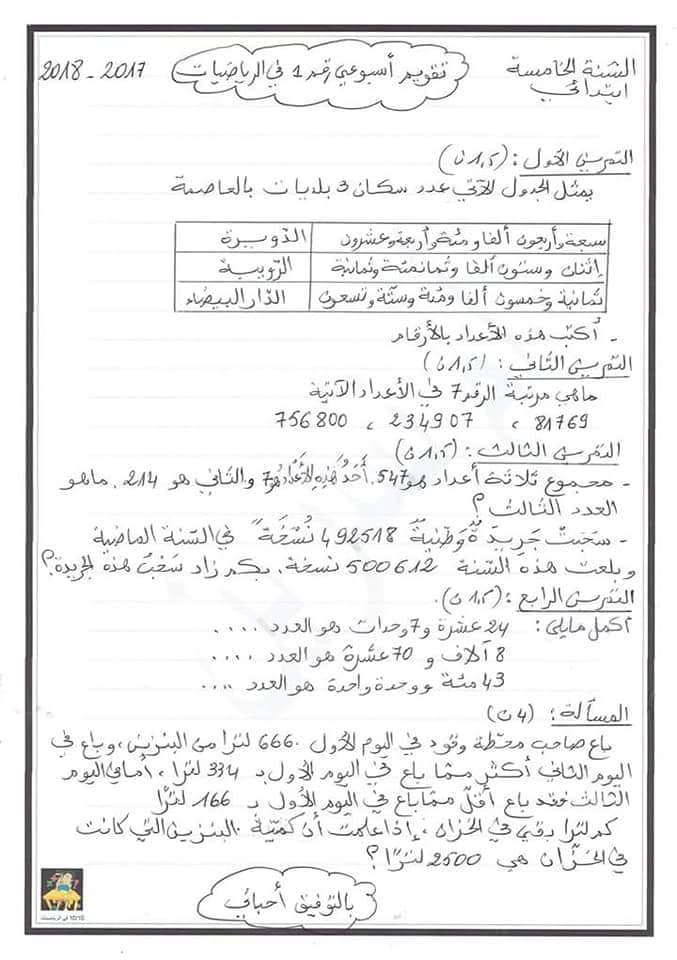 السنة الخامسة ابتدائي
تقويم أسبوعي رقم 1 في الرياضيات
2017 - 2018
التمرين الأول : (1,5 ن)
يمثل الجدول الآتي عدد سكان 3 بلديات بالعاصمة
سبعة وأربعون ألفا ومئة وأربعة وعشرون | الدويرة
إثنان وستون ألفا وثمانمئة وثمانية | الرويبة
ثمانية وخمسون ألفا ومئة وستة وتسعون | الدار البيضاء
- أكتب هذه الأعداد بالأرقام
التمرين الثاني : (1,5 ن)
ماهي مرتبة الرقم 7 في الأعداد الآتية
81769 ، 234907 ، 756800
التمرين الثالث : (1,5 ن)
- مجموع ثلاثة أعداد هو 547. أَحَدُ هَذِهِ الأَعْدَادِ هو 7 والثاني هو 214. ماهو
العدد الثالث ؟
- سحبت جريدة وطنية 492518 نسخة في السنة الماضية
و بلغت هذه السنة 500612 نسخة. بكم زاد سَحْبُ هذه الجريدة؟
التمرين الرابع : (1,5 ن).
أكمل مايلي : 24 عشرة و 7 وحدات هو العدد ....
8 آلاف و 70 عشرة هو العدد ....
43 مئة و وحدة واحدة هو العدد ....
المسألة : (4 ن)
باع صاحب محطة وقود في اليوم الأول 660 لترا من البنزين، وباع في
اليوم الثاني أكثر مما باع في اليوم الأول بـ 334 لترا ، أما في اليوم
الثالث فقد باع أقل مما باع في اليوم الأول بـ 166 لترًا
كم لترا بقي في الخزان ، إذا علمت أن كمية البنزين التي كانت
في الخزان هي 2500 لترًا ؟
بالتوفيق أحبائي
10/10 في الرياضيات